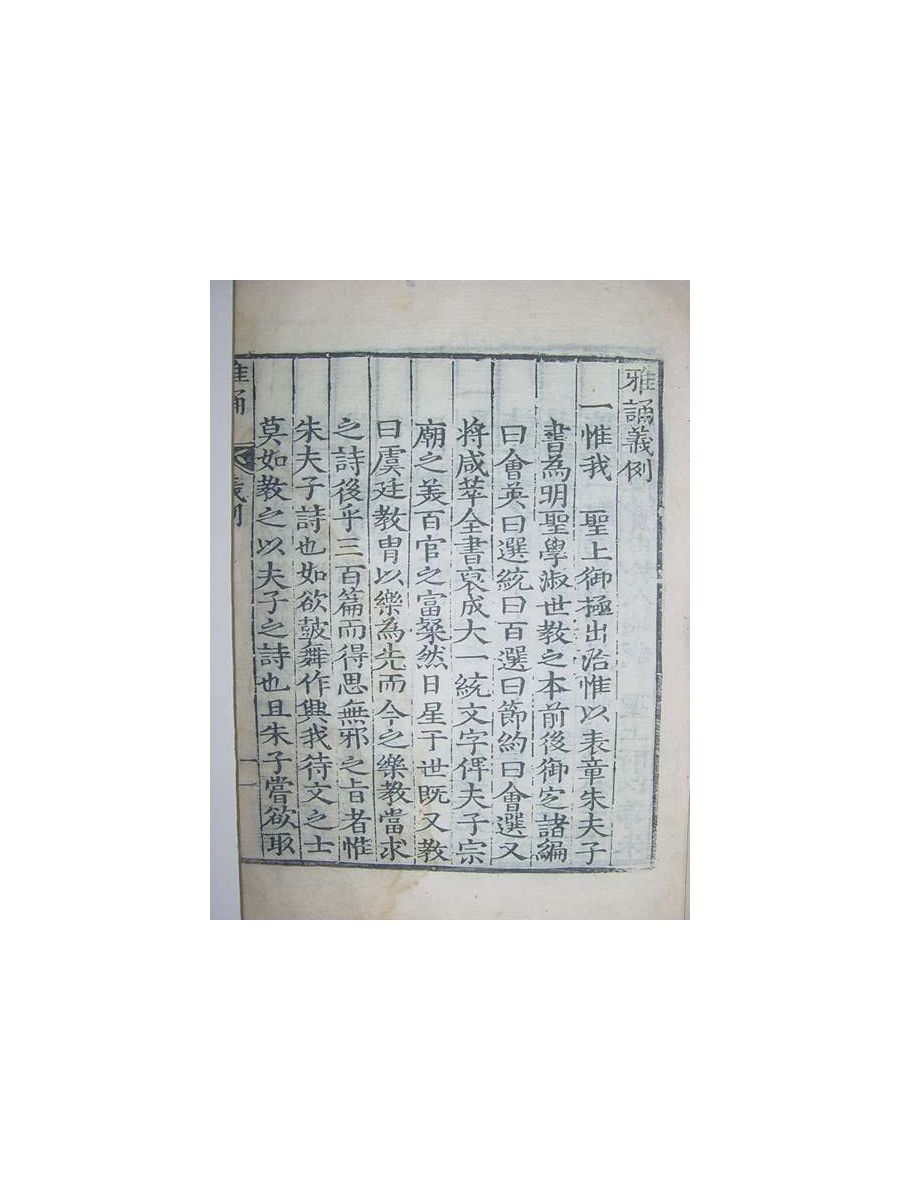 雅誦義例
一惟我 聖上御極出治惟以表章朱夫子
書為明聖學淑世教之本前後御定諸編
曰會英曰選統曰百選曰節約曰會選又
將咸萃全書裒成大一統文字俾夫子宗
廟之美百官之富粲然日星于世既又教
曰虞廷教胄以樂為先而今之樂教當求
之詩後乎三百篇而得思無邪之旨者惟
朱夫子詩也如欲鼓舞作興我待文之士
莫如教之以夫子之詩也且朱子嘗欲取
雅誦 義例 一